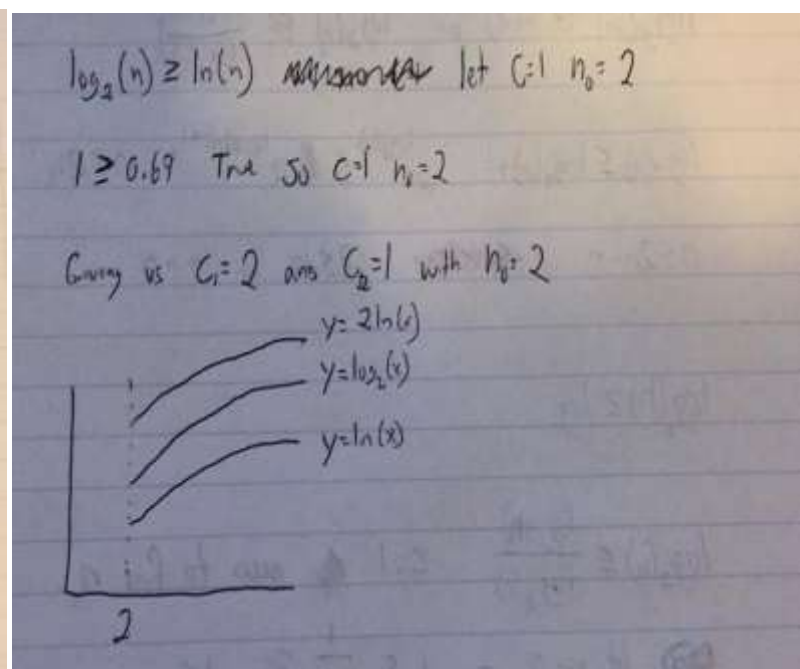 log₂(n) ≥ ln(n) let C=1 n₀=2
1 ≥ 0.69 True so C=1 n₀=2
Giving us C₁=2 ans C₂=1 with n₀=2
y=2ln(x)
y=log₂(x)
y=ln(x)
2